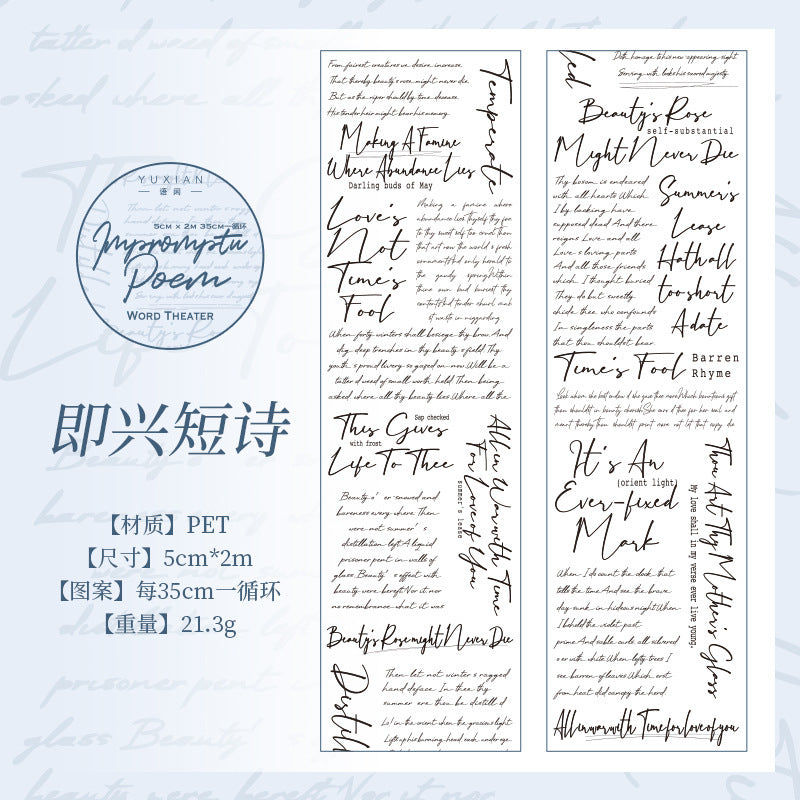 YUXIAN
语闲
5CM × 2M 35CM一循环
Impromptu
Poem
WORD THEATER
即兴短诗
【材质】PET
【尺寸】5cm*2m
【图案】每35cm一循环
【重量】21.3g
From fairest creatures we desire increase
That thereby beauty's rose might never die
But as the riper should by time decease
His tender heir might bear his memory
Temperate
Making A Famine
Where Abundance Lies
Darling buds of May
Love's
Not
Time's
Fool
Making a famine where
abundance lies Thyself thy foe
to thy sweet self too cruel Thou
that art now the world's fresh
ornament And only herald to
the gaudy spring Within
thine own bud buriest thy
content And tender churl mak
st waste in niggarding
When forty winters shall besiege thy brow And
dig deep trenches in thy beauty's field Thy
youth's proud livery so gazed on now Will be a
tatter d weed of small worth held Then being
asked where all thy beauty lies Where all the
This Gives
Sap checked
with frost
Life To Thee
All in War with Time
For Love of You
summer's lease
Beauty o' er snowed and
bareness every where Then
were not summer' s
distillation left A liquid
prisoner pent in walls of
glass Beauty' s effect with
beauty were bereft Nor it nor
no remembrance what it was
Beauty's Rose might Never Die
Distill
Then let not winter s ragged
hand deface In thee thy
summer ere thou be distill d
Lo! in the orient when the gracious light
Lifts up his burning head each under eye
Doth homage to his new appearing sight
Serving with looks his sacred majesty
Beauty's Rose
self-substantial
Might Never Die
Thy bosom is endeared
with all hearts Which
I by lacking have
supposed dead And there
reigns Love and all
Love s loving parts
And all those friends
which I thought buried
They do but sweetly
chide thee who confounds
In singleness the parts
that thou shouldst bear
Summer's
Lease
Hath all
too short
A date
Time's Fool
Barren
Rhyme
It's An
(orient light)
Ever-fixed
Mark
Thou Art Thy Mother's Glass
My love shall in my verse ever live young.
When I do count the clock that
tells the time And see the brave
day sunk in hideous night When
I behold the violet past
prime And sable curls all silvered
o er with white When lofty trees I
see barren of leaves Which erst
from heat did canopy the herd
All in war with Time for love of you